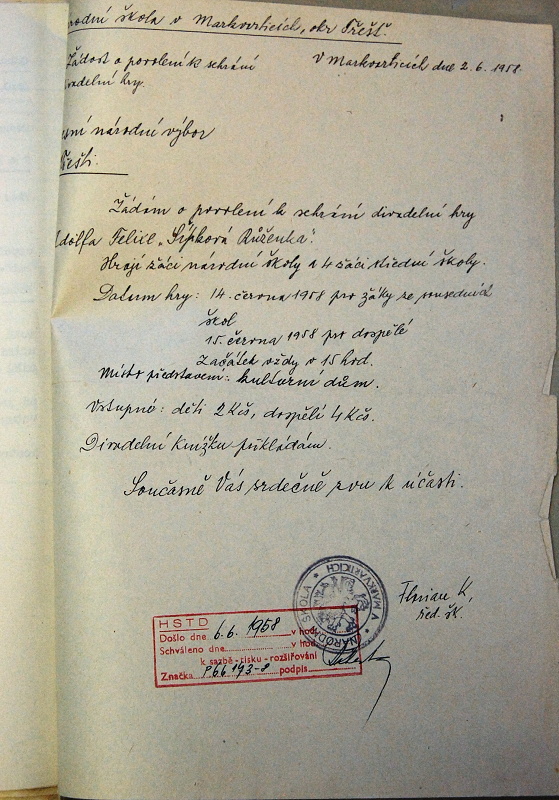 rodní škola v Markvarticích, okr Třešť.
Žádost o povolení k sehrání
divadelní hry.
V Markvarticích dne 2.6.1958.
sní národní výbor
Třešti.
Žádám o povolení k sehrání divadelní hry
dolfa Felice „Šípková Růženka".
Hrají žáci národní školy a 4 žáci střední školy.
Datum hry: 14. června 1958 pro žáky ze sousedních
škol
15. června 1958 pro dospělé
Začátek vždy v 15 hod.
Místo představení: kulturní dům.
Vstupné: děti 2 Kčs, dospělí 4 Kčs.
Divadelní knížku přikládám.
Současně Vás srdečně zvu k účasti.
Florian K,
řed. šk.
NÁRODNÍ ŠKOLA * V MARKVARTICÍCH *
HSTD
Došlo dne 6.6. 1958 v hod.
Schváleno dne v hod.
k sazbě - tisku - rozšiřování
Značka P66 193-8 podpis